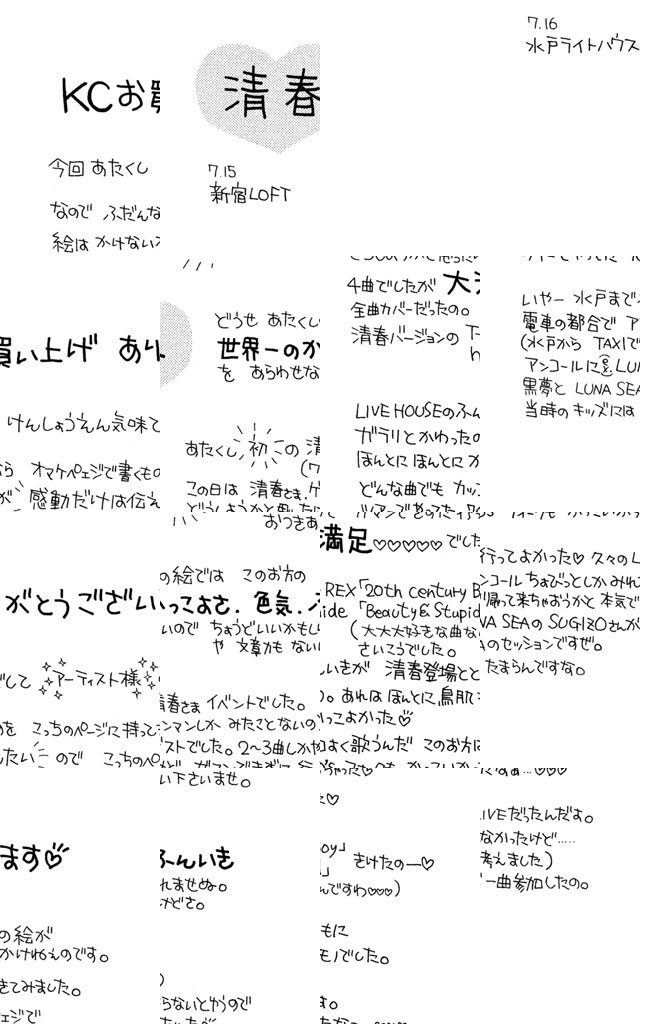 KCお買
今回 あたくし
なので ふだんな
絵は かけない
買い上げ あり
けんしょうえん気味で
なら オマケページで書くもの
が 感動だけは伝え
がとうござい
でして アーティスト様
のを こっちのページに持って
したい ので こっちのペ
ます♡
の絵が
かけねえのです。
きてみました。
ページで
清春
7.15
新宿LOFT
どうせ あたくし
世界一のか
を あらわせな
あたくし 初 の 清
この日は 清春さま、ゲ
おつきあ
の絵では このお方の
っこよさ、色気、
いので ちょうどいいかもし
や 文章力も ない
清春さま イベントでした。
ンマンしか みたことないの
ストでした。2〜3曲しか
い下さいませ。
ふんいき
れませぬ。
けどさ。
)
らないとゆうので
4曲でしたが 大
全曲カバーだったの。
清春バージョンの T-
h
LIVE HOUSEのふん
ガラリとかわったの
ほんとに ほんとに カ
どんな曲でも カッ
満足♡♡♡♡♡でした
REX「20th century B
ide 「Beauty & Stupid
(大大大好きな曲な
さいこうでした。
いきが 清春登場とと
の。あれは ほんとに鳥肌
ってよかった♡
よく歌うんだ このお方は
ちゃった♡
た♡
oy」
」 きけたのー♡
んですわ♡♡♡)
もに
モノでした。
す。
7.16
水戸ライトハウス
いやー 水戸まで
電車の都合で ア
(水戸から TAXIで
アンコールに LU
黒夢と LUNA SEA
当時の キッズには
行ってよかった♡ 久々のL
ンコール ちょびっとしかみれ
帰って来ちゃおうかと 本気で
NA SEAの SUGIZOさんが
Aのセッションですぜ。
たまらんですな。
IVEだったんだよ。
なかったけど……
考えました)
一曲参加したの。